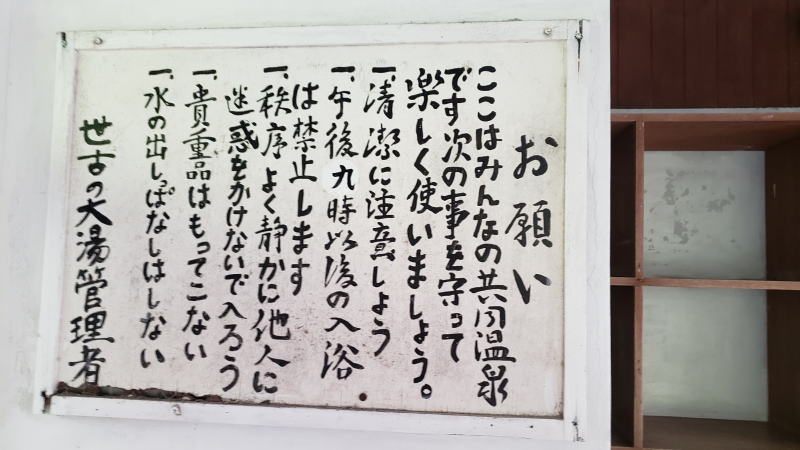 お願い
ここはみんなの共同温泉
です次の事を守って
楽しく使いましょう。
一、清潔に注意しょう
一、午後九時以後の入浴
は禁止します
一、秩序よく静かに他人に
迷惑をかけないで入ろう
一、貴重品はもってこない
一、水の出しっぱなしはしない
世古の大湯管理者